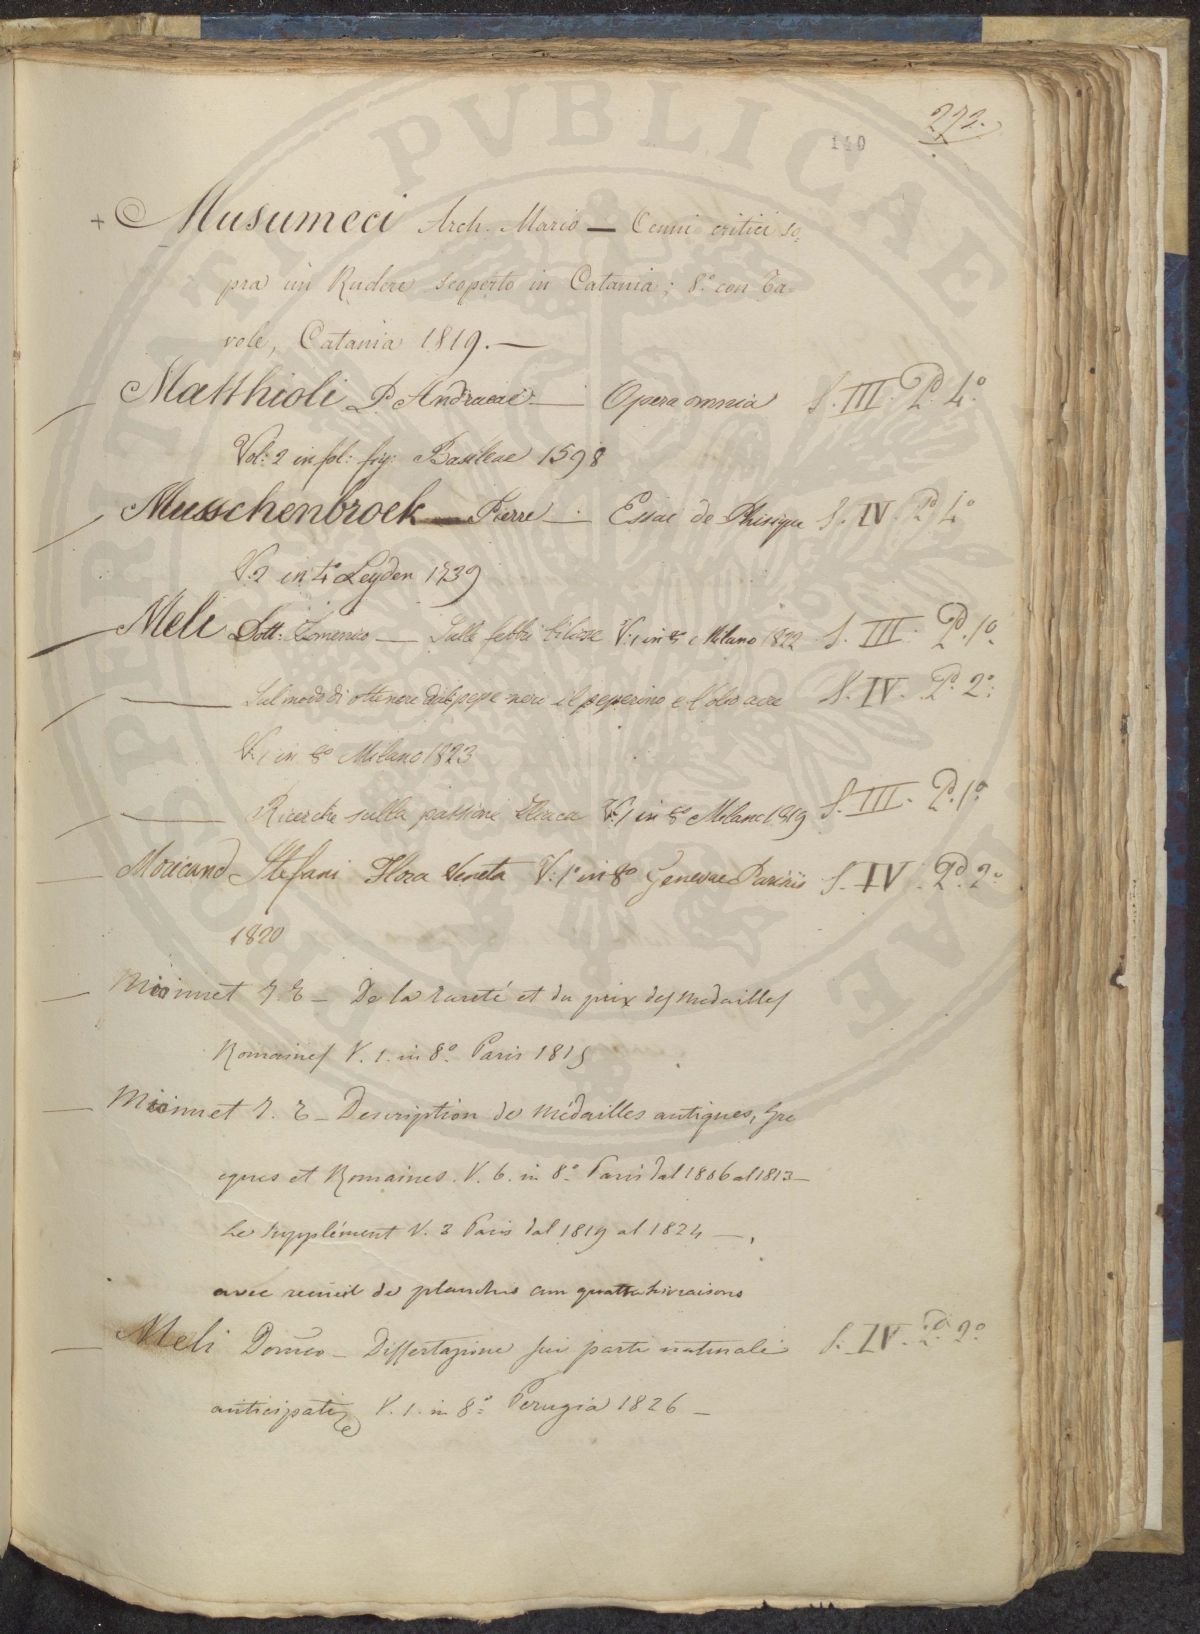 272.
140
+ Musumeci Arch. Mario — Cenni critici so,
pra un Rudere scoperto in Catania; 8.º con Ta-
vole, Catania 1819. —
Matthioli P. Andraeae — Opera omnia S. III. Pº. 4º
Vol: 2 in fol: fig: Basileae 1598
Musschenbroek — Pierre — Essai de Phisique S. IV. Pº. 4º
V. 2 in 4º Leyden 1739
Meli Dott. Domenico — Sulle febbri biliose V: 1 in 8º Milano 1822 S. III. Pº. 1º
— Sul modo di ottenere dal pepe nero il peperino e l'olio acre S. IV. Pº. 2º
V. 1 in 8º Milano 1823
— Ricerche sulla passione Iliaca V. 1 in 8º Milano 1819 S. III. Pº. 1º
Moricand Stefani Flora Veneta V: 1º in 8º Genevae Parisiis S. IV. Pº. 2º
1820
Mionnet T. E — De la rareté et du prix des medailles
Romaines V. 1. in 8º. Paris 1815
Mionnet T. E — Description de Médailles antiques, Gre
cques et Romaines. V. 6. in 8º. Paris dal 1806 al 1813 —
Le Supplément V. 3 Paris dal 1819 al 1824 — ,
avec recueil de planches livraisons
Meli Domco — Dissertazione sui parti naturali S. IV. Pº. 2º
anticipati V. 1. in 8º: Perugia 1826 —
PROSPERITATI PVBLICAE AVGENDAE